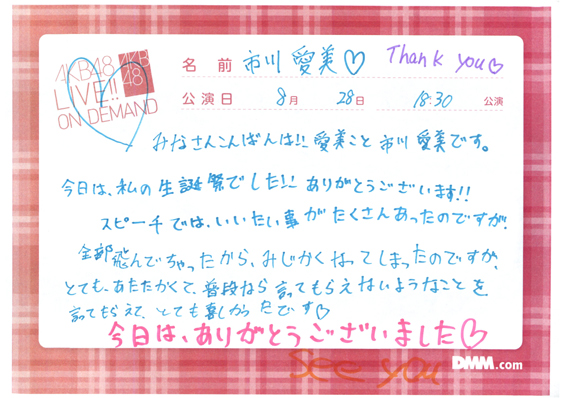 AKB48
LIVE!!
ON DEMAND
AKB
48
名前 市川 愛美♡ Thank you♡
公演日 8月 28日 18:30 公演
みなさんこんばんは!! 愛美こと市川愛美です。
今日は、私の生誕祭でした!! ありがとうございます!!
スピーチでは、いいたい事がたくさんあったのですが、
全部飛んでちゃったから、みじかくなってしまったのですが、
とても、あたたかくて、普段なら言ってもらえないようなことを
言ってもらえて、とても嬉しかったです♡
今日は、ありがとうございました♡
see you
DMM.com